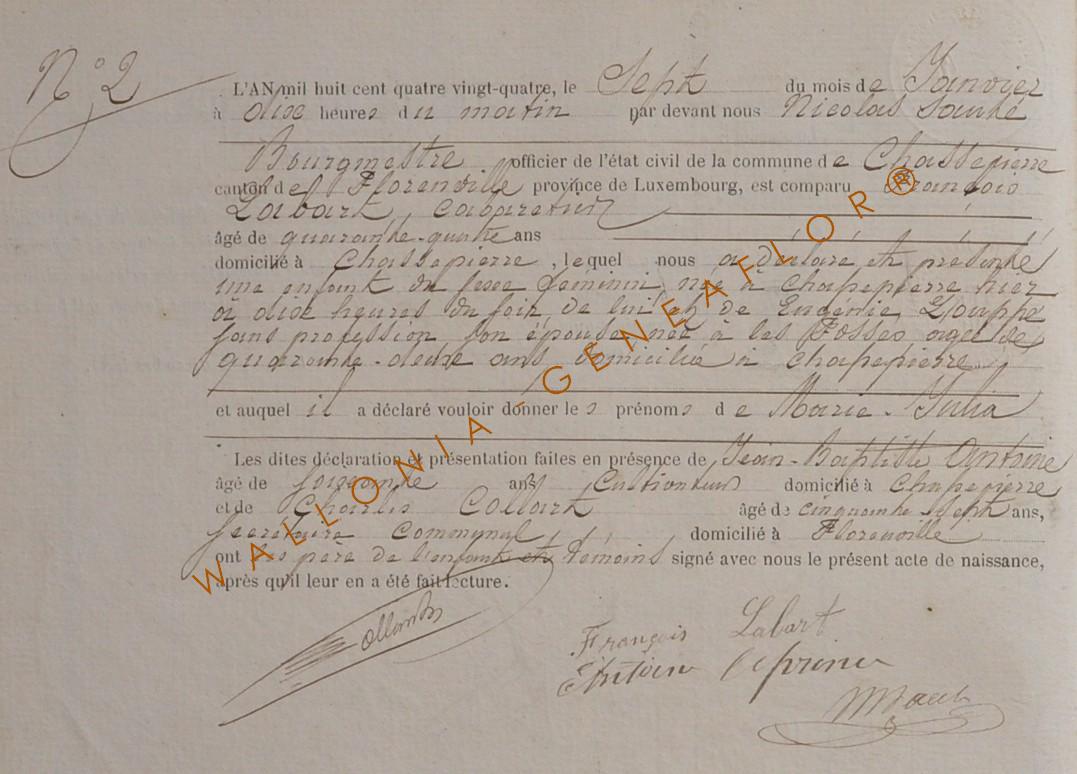 N° 2
L'AN mil huit cent quatre vingt-quatre, le Sept du mois de Janvier
à dix heures du matin par devant nous Nicolas
Bourgmestre officier de l'état civil de la commune de Chassepierre
canton de Florenville province de Luxembourg, est comparu François
Labart, cabaretier
âgé de quarante-quatre ans
domicilié à Chassepierre, lequel nous a déclaré et présenté
une enfant du sexe féminin, née à Chassepierre hier
à dix heures du soir, de lui et de Eugénie Louppe
sans profession son épouse née à les Fosses agée de
quarante-deux ans domiciliée à Chassepierre
et auquel il a déclaré vouloir donner les prénoms de Marie-Julia
Les dites déclaration et présentation faites en présence de Jean-Baptiste Antoine
âgé de soixante ans Cultivateur domicilié à Chassepierre
et de Charles Collart âgé de cinquante-sept ans,
Secrétaire Communal, domicilié à Florenville
ont les père de l'enfant et témoins signé avec nous le présent acte de naissance,
après qu'il leur en a été fait lecture.
François Labart
Antoine
WALLONIA - GENEAFLOR®